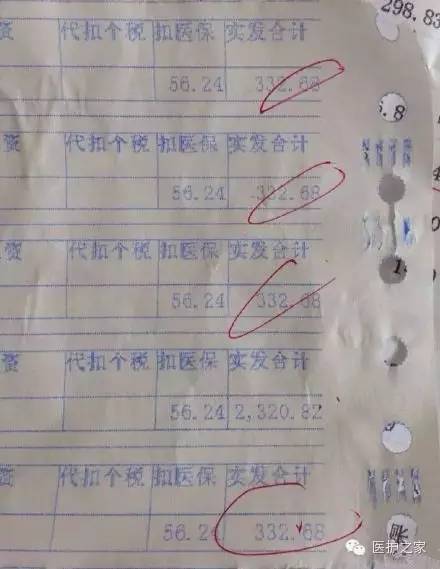 298.83
资 代扣个税 扣医保 实发合计
56.24 332.68
.8
资 代扣个税 扣医保 实发合计
56.24 332.68
资 代扣个税 扣医保 实发合计
56.24 332.68
资 代扣个税 扣医保 实发合计
56.24 2,320.82
资 代扣个税 扣医保 实发合计
56.24 332.68
账
医护之家